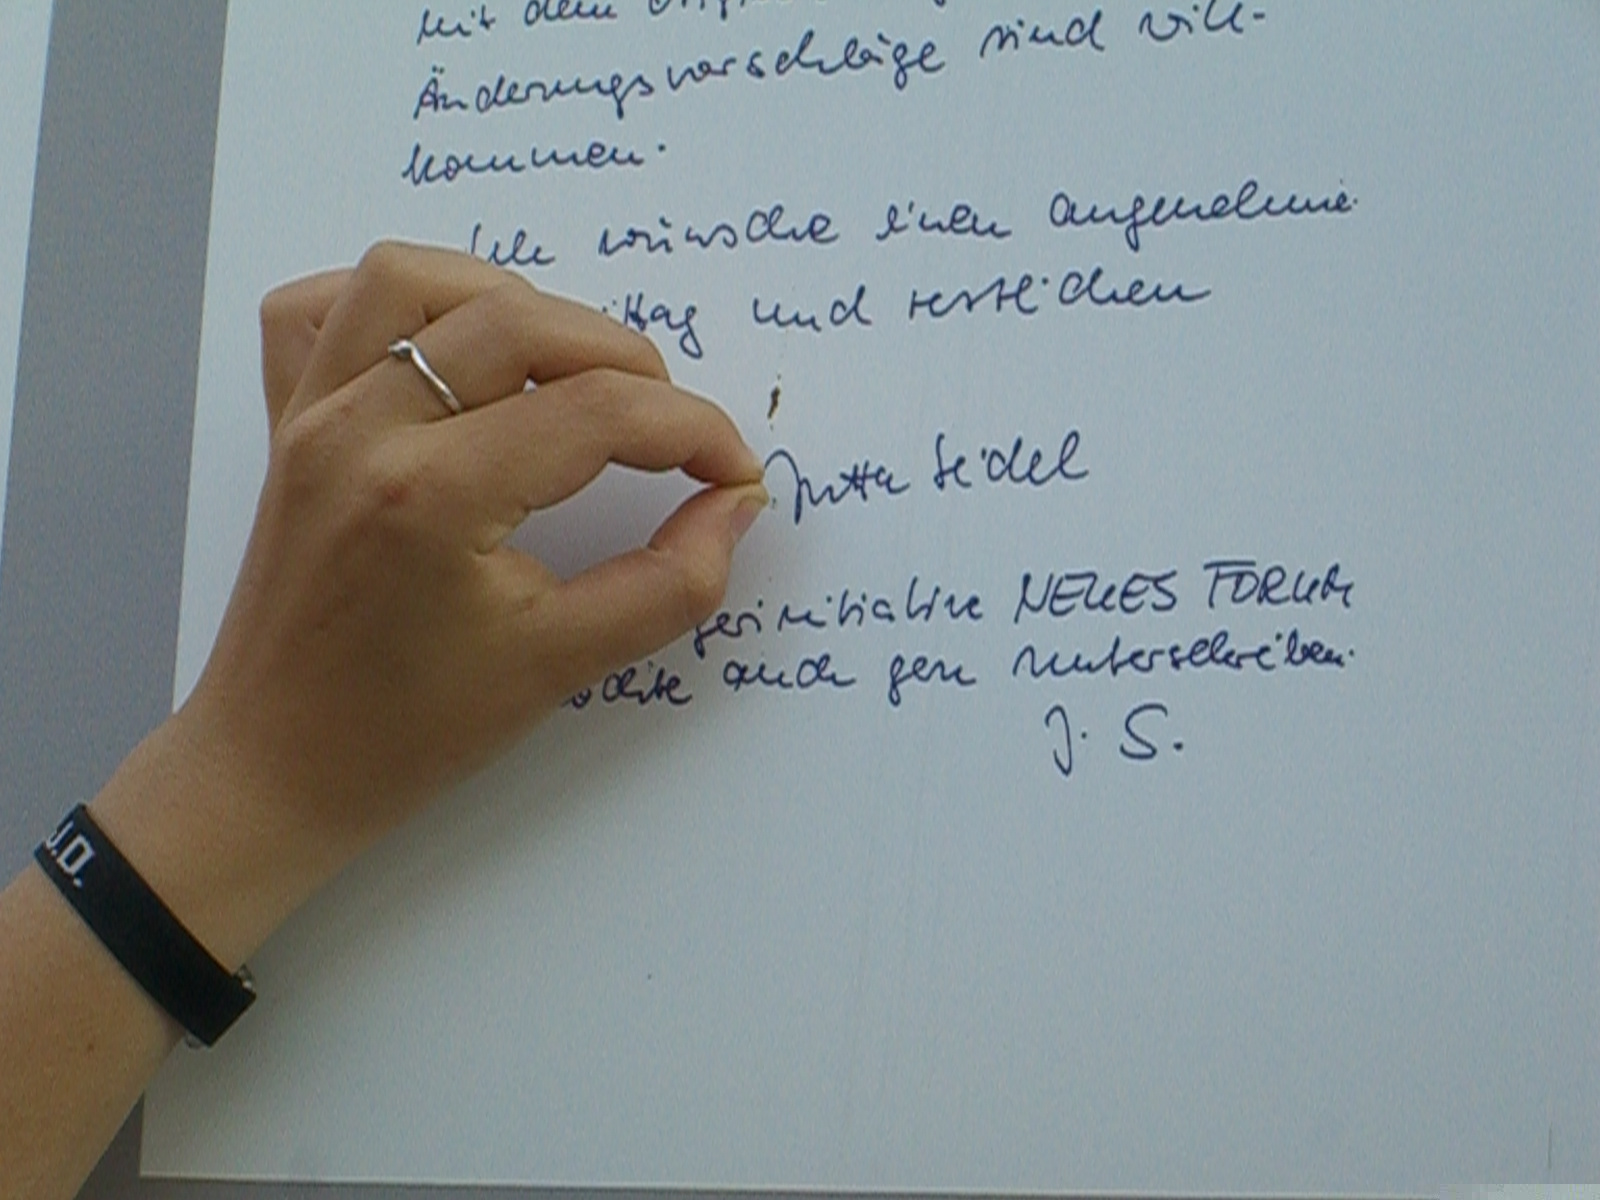 mit dem
Änderungsvorschläge sind will-
kommen.
Ich wünsche einen angenehme
ittag und restlichen
Jutta Seidel
gerinitiative NEUES FORUM
möchte auch gern unterschreiben.
J. S.
J.D.